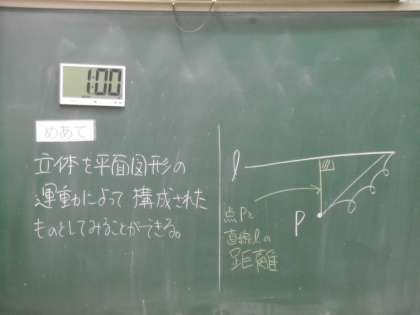 1:00
めあて
立体を平面図形の
運動によって構成された
ものとしてみることができる。
l
P
点Pと
直線lの
距離